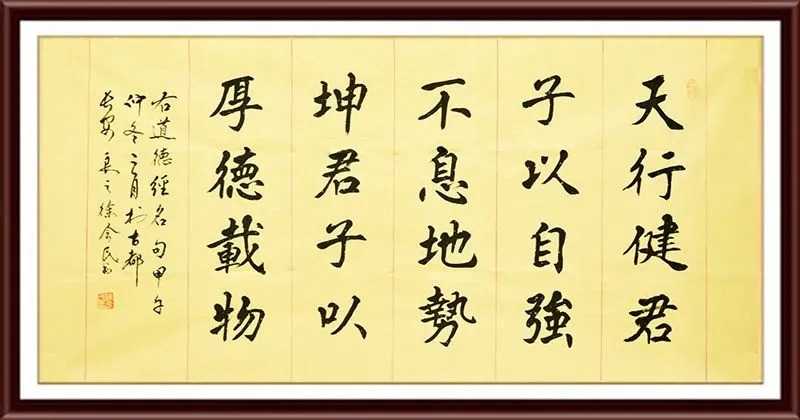 天行健君
子以自強
不息地勢
坤君子以
厚德載物
右道德經名句甲午
仲冬之月於古都
長安